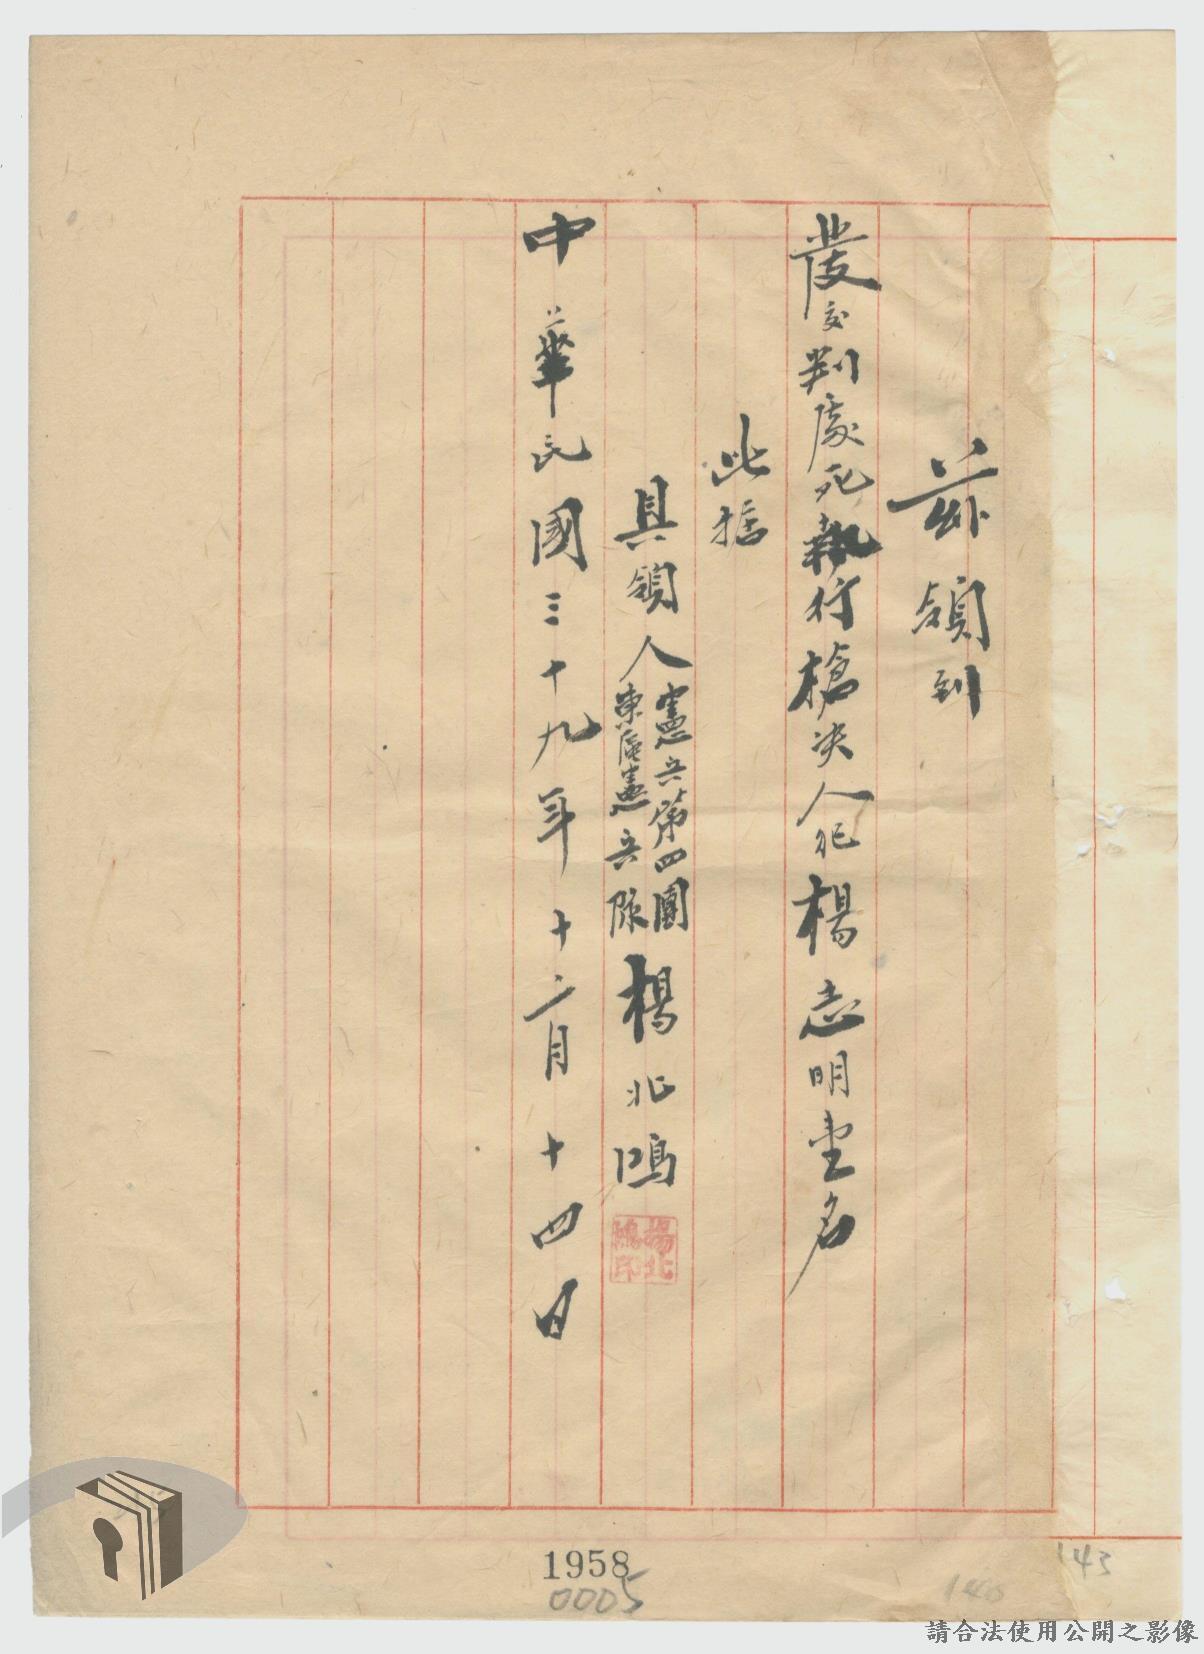 茲領到
發交判處死執行槍決人犯楊志明壹名
此據
具領人憲兵第四團東區憲兵隊楊北鴻
楊北鴻印
中華民國三十九年十二月十四日
1958
0005
140
143
請合法使用公開之影像